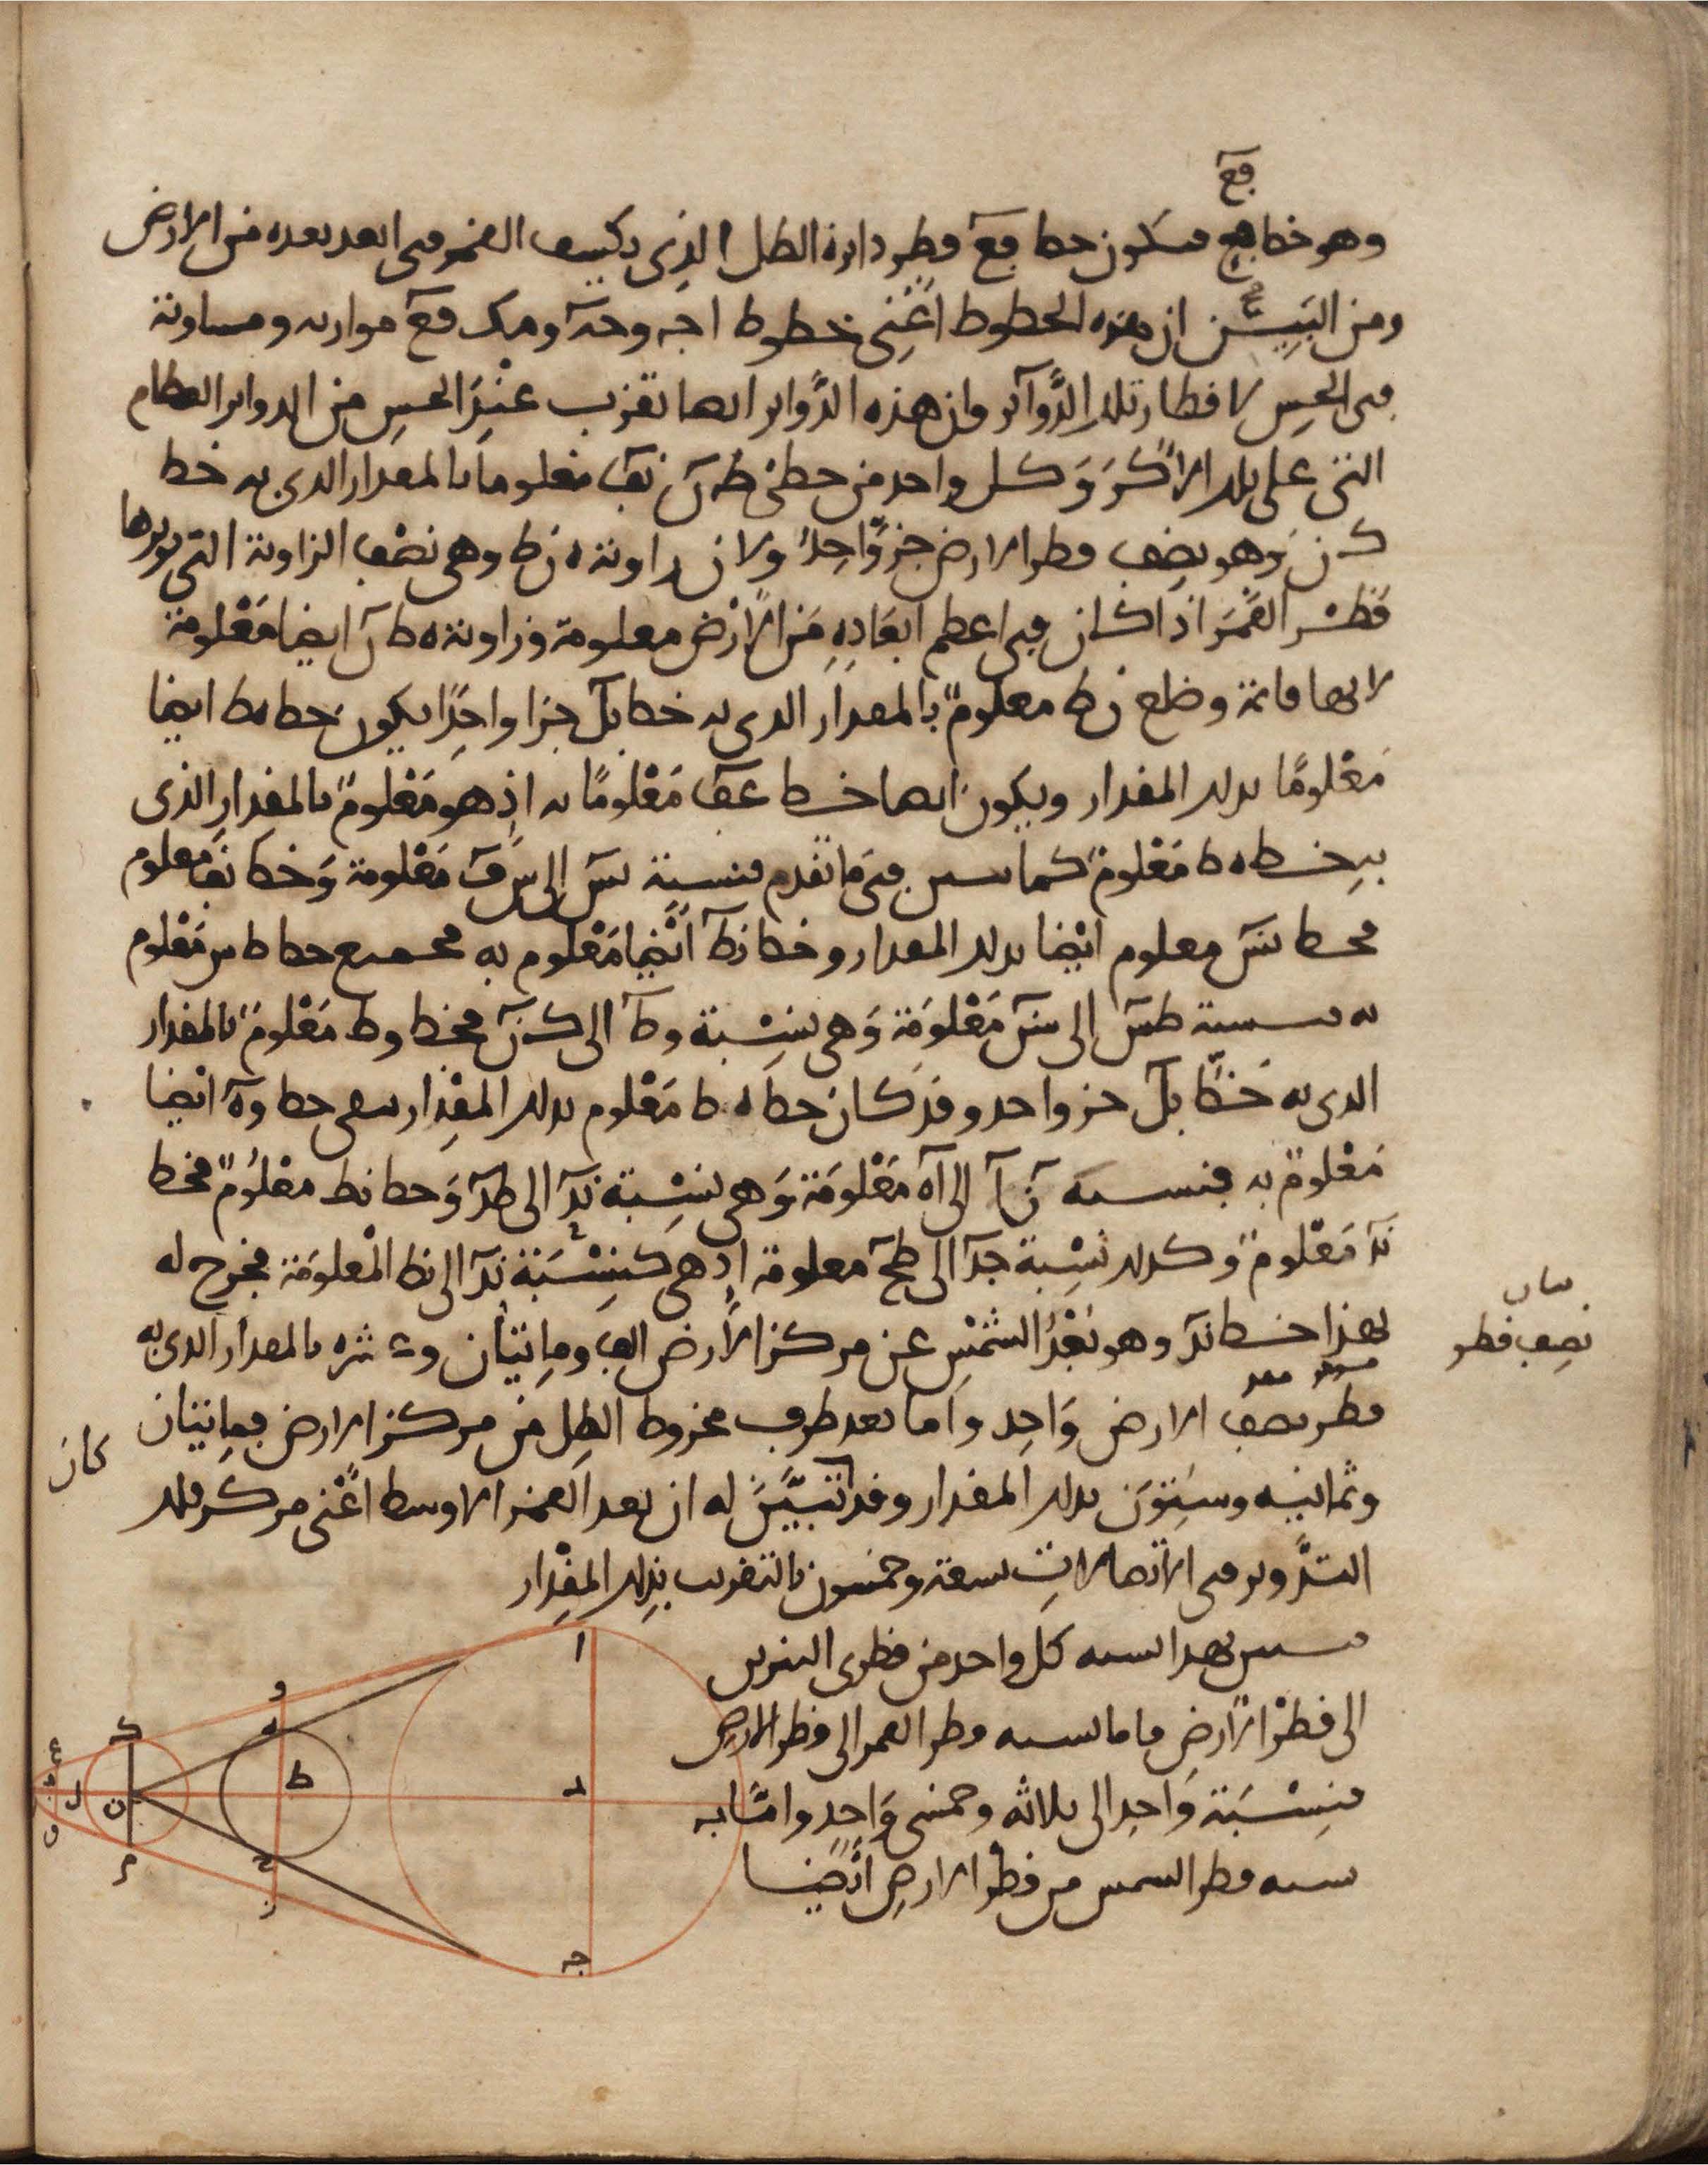 فع
وهو خط فع فيكون خط فع قطر دايرة الظل الذي يكسف القمر في ابعد بعده من الارض
ومن البين ان هذه الخطوط اعني خطوط اجـ وحه ومك فع موازيه ومساوية
في الحس لاقطار تلك الدواير وان هذه الدواير ايضا تقرب عند الحس من الدواير العظام
التي على تلك الاكر وكل واحد من خطي طن نف معلوما بالمقدار الذي به خط
كن وهو نصف قطر الارض جزوا واحدا ولان زاوية ه ن ط وهي نصف الزاوية التي يوترها
قطر القمر اذا كان في اعظم ابعاده من الارض معلومة وزاوية ه ط ن ايضا معلومة
لانها قائمة وضلع ن ط معلوم بالمقدار الذي به خط نل جزا واحدا يكون خط هط ايضا
معلوما بذلك المقدار ويكون ايضا خط عف معلوما به اذ هو معلوم بالمقدار الذي
به خط ه ط معلوم كما تبين في ما تقدم فنسبة نس الى س ف معلومة وخط نف معلوم
فخط نس معلوم ايضا بذلك المقدار وخط نط ايضا معلوم به فجميع خط ط س معلوم
به فنسبة طس الى سن معلومة وهي نسبة وط الى كن فخط وط معلوم بالمقدار
الذي به خط نل جزو واحد وقد كان خط ه ط معلوم بذلك المقدار يبقى خط وه ايضا
معلوم به فنسبة ن ا الى اه معلومة وهي نسبة ند الى طد وخط نط معلوم فخط
ند معلوم وكذلك نسبة جد الى طح معلومة اذ هي كنسبة ند الى نط المعلومة فخرج له
بهذا خط ند وهو بعد الشمس عن مركز الارض الف ومايتان وعشره بالمقدار الذي به
قطر نصف الارض واحد واما بعد طرف مخروط الظل من مركز الارض فمايتان
وثمانيه وستون بذلك المقدار وقد تبين له ان بعد القمر الاوسط اعني مركز فلك
التدوير في الاتصالات تسعة وخمسون بالتقريب بذلك المقدار
فتبين بهذا نسبه كل واحد من قطري النيرين
الى قطر الارض فاما نسبه قطر القمر الى قطر الارض
فنسبة واحد الى ثلاثه وخمسي واحد واما
نسبه قطر الشمس من قطر الارض ايضا
نصف قطر
كان
ا
و
ه
ط
د
ك
ع
ل
ن
ف
م
ح
ز
جـ